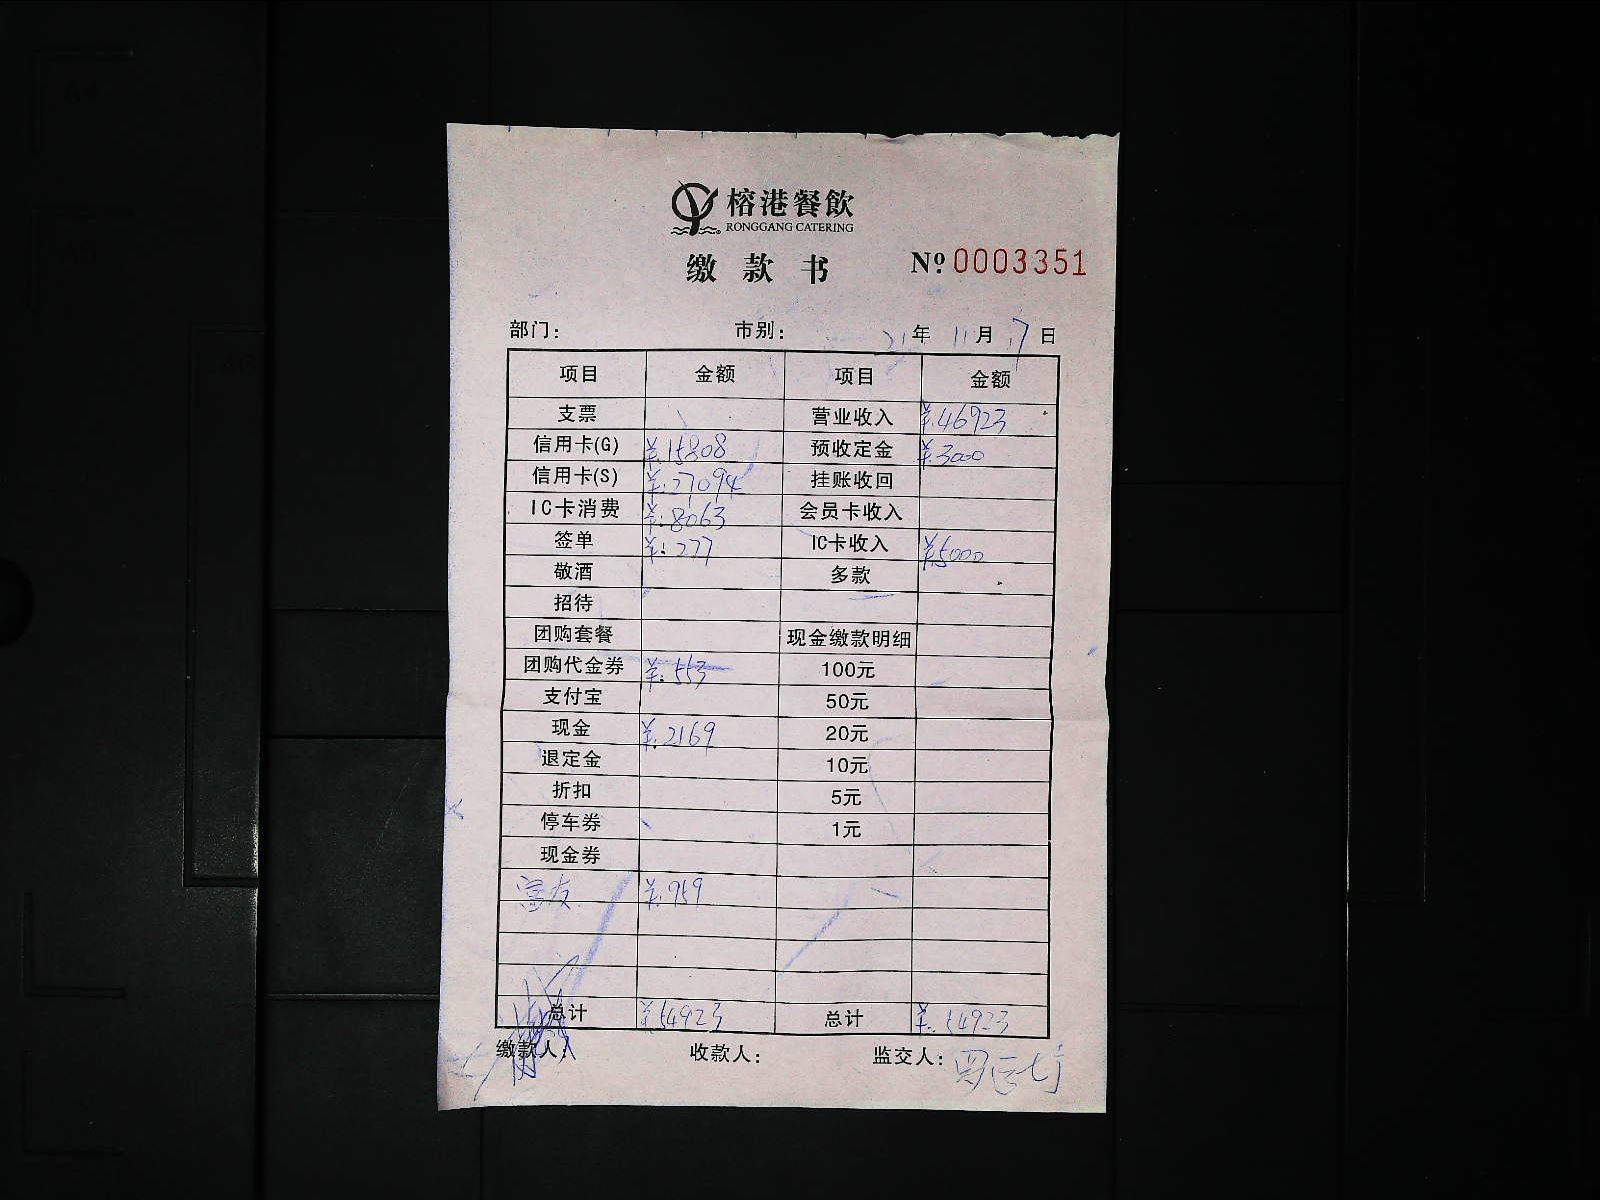 榕港餐飲
RONGGANG CATERING
缴款书 № 0003351
部门： 市别： 21年 11月 17日
项目 金额 项目 金额
支票 营业收入 ¥:46923
信用卡(G) ¥:15808 预收定金 ¥:3000
信用卡(S) ¥:27094 挂账收回
IC卡消费 ¥:8063 会员卡收入
签单 ¥:277 IC卡收入 ¥:5000
敬酒 多款
招待
团购套餐 现金缴款明细
团购代金券 ¥:553 100元
支付宝 50元
现金 ¥:2169 20元
退定金 10元
折扣 5元
停车券 1元
现金券
¥:959
总计 ¥:54923 总计 ¥:54923
缴款人： 收款人： 监交人：